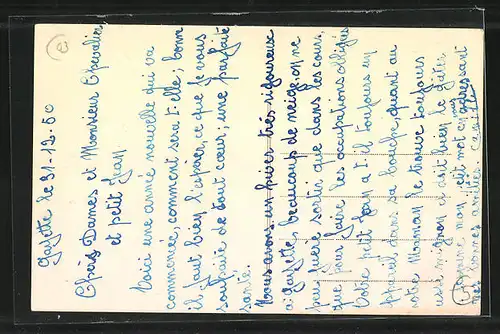 Gayette le 31-12-60
Chères Dames et Monsieur Chevalier
et petit Jean
Voici une année nouvelle qui va
commencée, comment sera t-elle; bonne
il faut bien l'espérer, ce que je vous
souhaite de tout cœur; une parfaite
santé.
Nous avons un hiver très rigoureux
à Gayette, beaucoup de neige, on ne
peu guère sortir que dans les cours,
que pour faire les occupations obligées
Votre petit Jean a t-il toujours un
appareil dans sa bouche, quant au
votre Maman le trouve toujours
aussi mignon et doit bien le gâter
Je termine mon petit mot en vous adressant
mes bonnes amitiés.